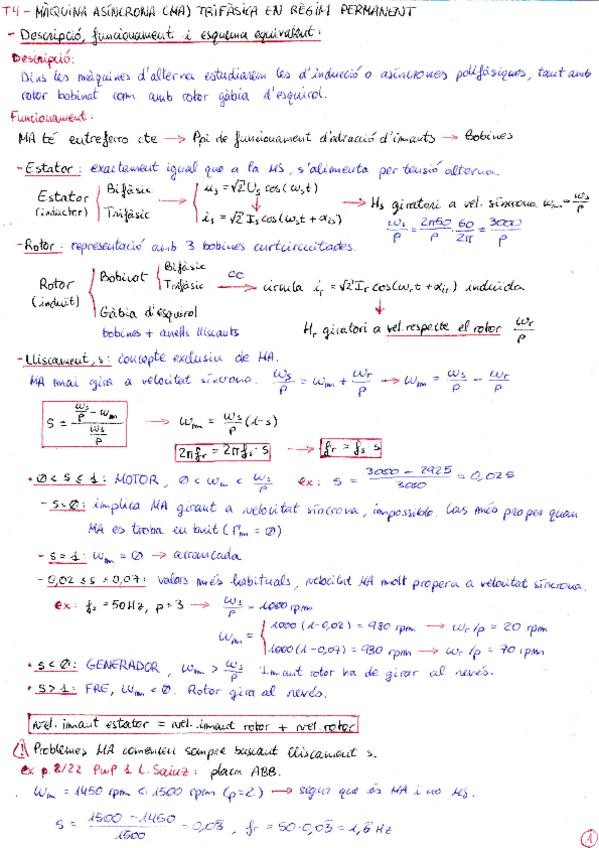 T4 - MÀQUINA ASÍNCRONA (MA) TRIFÀSICA EN RÈGIM PERMANENT
- Descripció, funcionament i esquema equivalent:
Descripció:
Dins les màquines d'alterna estudiarem les d'inducció o asíncrones polifàsiques, tant amb
rotor bobinat com amb rotor gàbia d'esquirol.
Funcionament:
MA té entreferro cte → Ppi de funcionament d'atracció d'imants → Bobines
- Estator: exactament igual que a la MS, s'alimenta per tensió alterna.
Estator (inductor) { Bifàsic Trifàsic → { us = √2 Us cos(ωst) is = √2 Is cos(ωst + αis) → Hs giratori a vel. síncrona ωm = ωs/p
ωs/p = 2π50/p · 60/2π = 3000/p
- Rotor: representació amb 3 bobines curtcircuitades.
Rotor (induït) { Bobinat { Bifàsic Trifàsic CC → circula ir = √2 Ir cos(ωrt + αir) induïda
Gàbia d'esquirol
bobines + anells lliscants
Hr giratori a vel. respecte el rotor ωr/p
- Lliscament, s: concepte exclusiu de MA.
MA mai gira a velocitat síncrona. ωs/p = ωm + ωr/p → ωm = ωs/p - ωr/p
s = (ωs/p - ωm) / (ωs/p) → ωm = ωs/p (1-s)
2πfr = 2πfs · s → fr = fs · s
• 0 < s ≤ 1: MOTOR, 0 < ωm < ωs/p ex: s = (3000 - 2925)/3000 = 0,025
- s=0: implica MA girant a velocitat síncrona, impossible. Cas més proper quan
MA es troba en buit (Γm = 0)
- s = 1: ωm = 0 → arrancada
- 0,02 ≤ s ≤ 0,07: valors més habituals, velocitat MA molt propera a velocitat síncrona.
ex: fs = 50Hz, p = 3 → ωs/p - 1000 rpm
ωm = { 1000 (1-0,02) = 980 rpm → ωr/p = 20 rpm
1000 (1-0,07) = 930 rpm → ωr/p = 70 rpm
• s < 0: GENERADOR, ωm > ωs/p Imant rotor ha de girar al revés.
• s > 1: FRE, ωm < 0. Rotor gira al revés.
vel. imant estator = vel. imant rotor + vel. rotor
! Problemes MA comencen sempre buscant lliscament s.
ex p. 8/22 PwP 1 L. Sainz: placa ABB.
ωm = 1450 rpm < 1500 rpm (p=2) → segur que és MA i no MS.
s = (1500 - 1450)/1500 = 0,03̂ , fr = 50 · 0,03̂ = 1,6̂ Hz
1